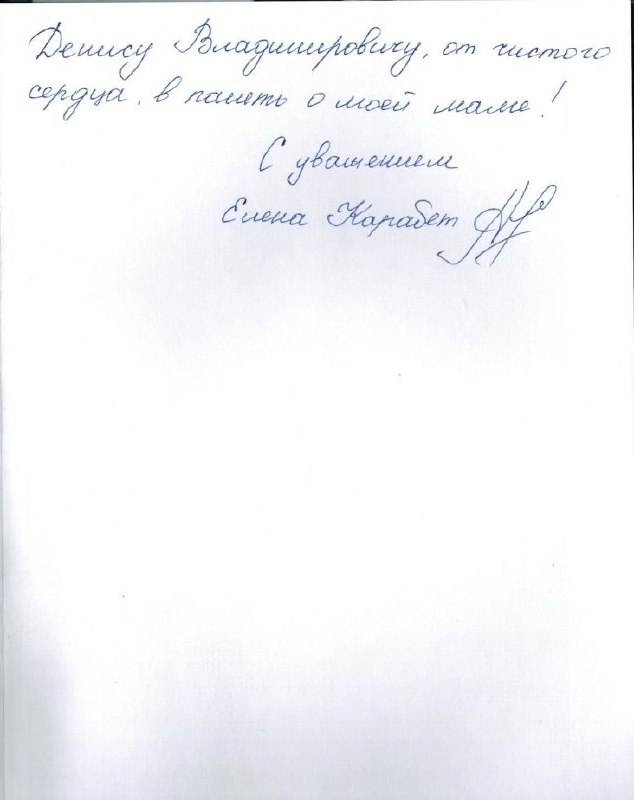 Денису Владимировичу, от чистого
сердца, в память о моей маме!
С уважением
Елена Карабет